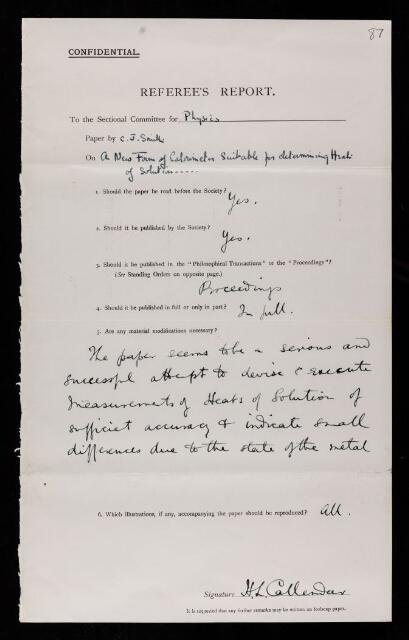 87
CONFIDENTIAL.
REFEREE'S REPORT.
To the Sectional Committee for Physics
Paper by C. J. Smith
On A New Form of Calorimeter Suitable for determining Heats
of Solution.....
1. Should the paper be read before the Society? Yes.
2. Should it be published by the Society? Yes.
3. Should it be published in the "Philosophical Transactions" or the "Proceedings"?
(See Standing Orders on opposite page.)
Proceedings
4. Should it be published in full or only in part? In full.
5. Are any material modifications necessary?
The paper seems to be a serious and
successful attept to devise & execute
measurements of Heats of Solution of
sufficiet accuracy to indicate small
differences due to the state of the metal
6. Which illustrations, if any, accompanying the paper should be reproduced? All.
Signature H. L. Callendar
It is requested that any further remarks may be written on foolscap paper.